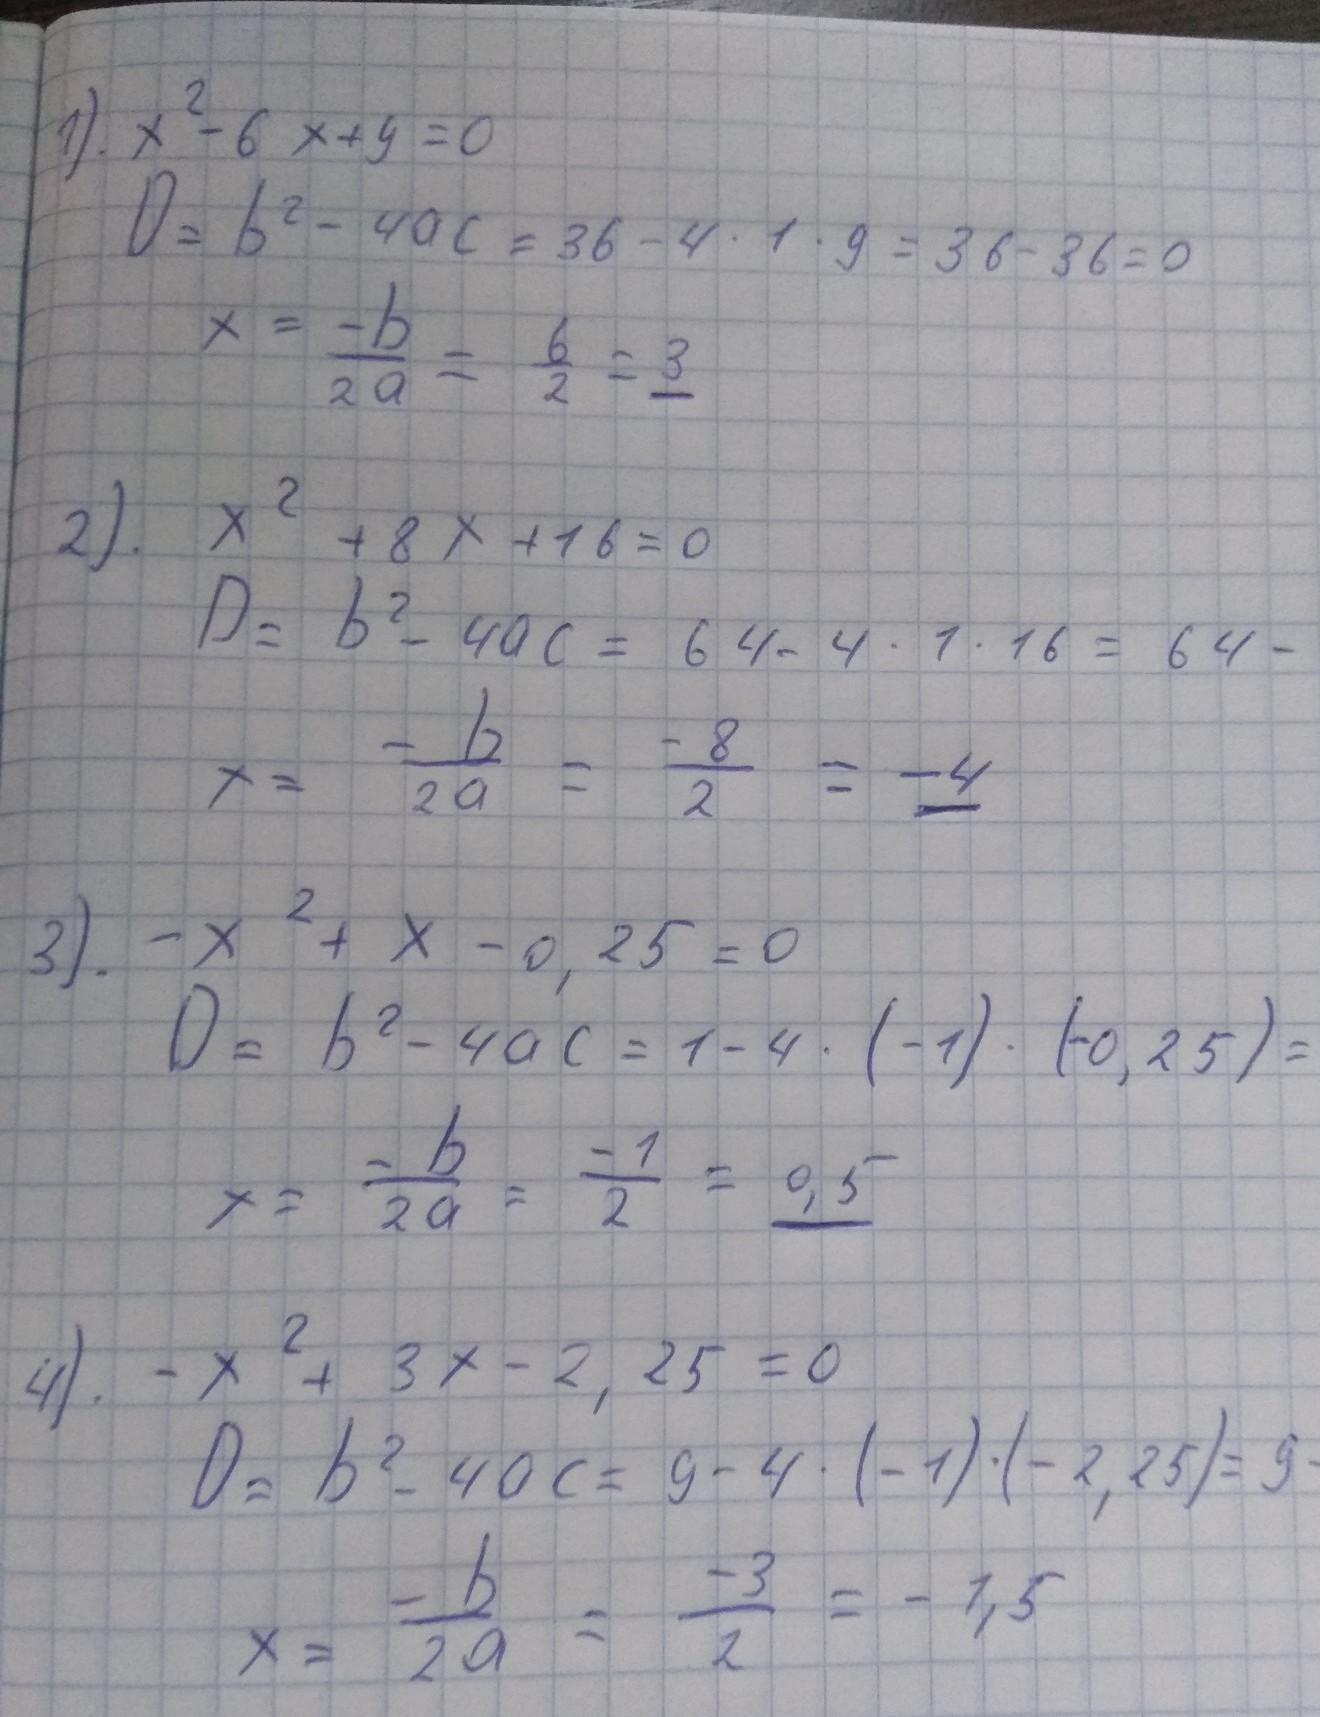 1). x² - 6x + 9 = 0
D = b² - 4ac = 36 - 4 · 1 · 9 = 36 - 36 = 0
x = -b/2a = 6/2 = 3
2). x² + 8x + 16 = 0
D = b² - 4ac = 64 - 4 · 1 · 16 = 64 -
x = -b/2a = -8/2 = -4
3). -x² + x - 0,25 = 0
D = b² - 4ac = 1 - 4 · (-1) · (-0,25) =
x = -b/2a = -1/2 = 0,5
4). -x² + 3x - 2,25 = 0
D = b² - 4ac = 9 - 4 · (-1) · (-2,25) = 9 -
x = -b/2a = -3/2 = -1,5